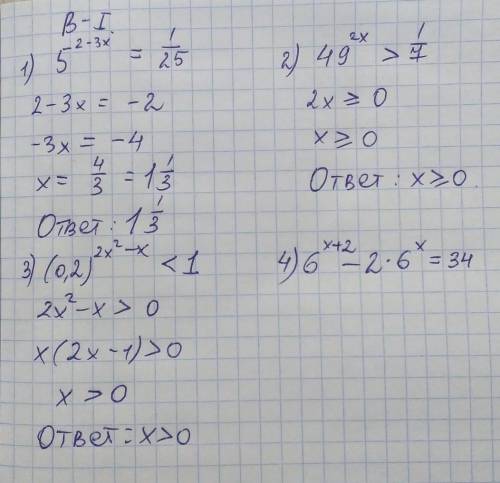 В-I.
1) 5^{-2-3x} = 1/25
2-3x = -2
-3x = -4
x = 4/3 = 1 1/3
Ответ: 1 1/3
2) 49^{2x} > 1/7
2x ≥ 0
x ≥ 0
Ответ: x ≥ 0.
3) (0,2)^{2x²-x} < 1
2x²-x > 0
x(2x-1)>0
x > 0
Ответ: x>0
4) 6^{x+2} - 2·6^x = 34